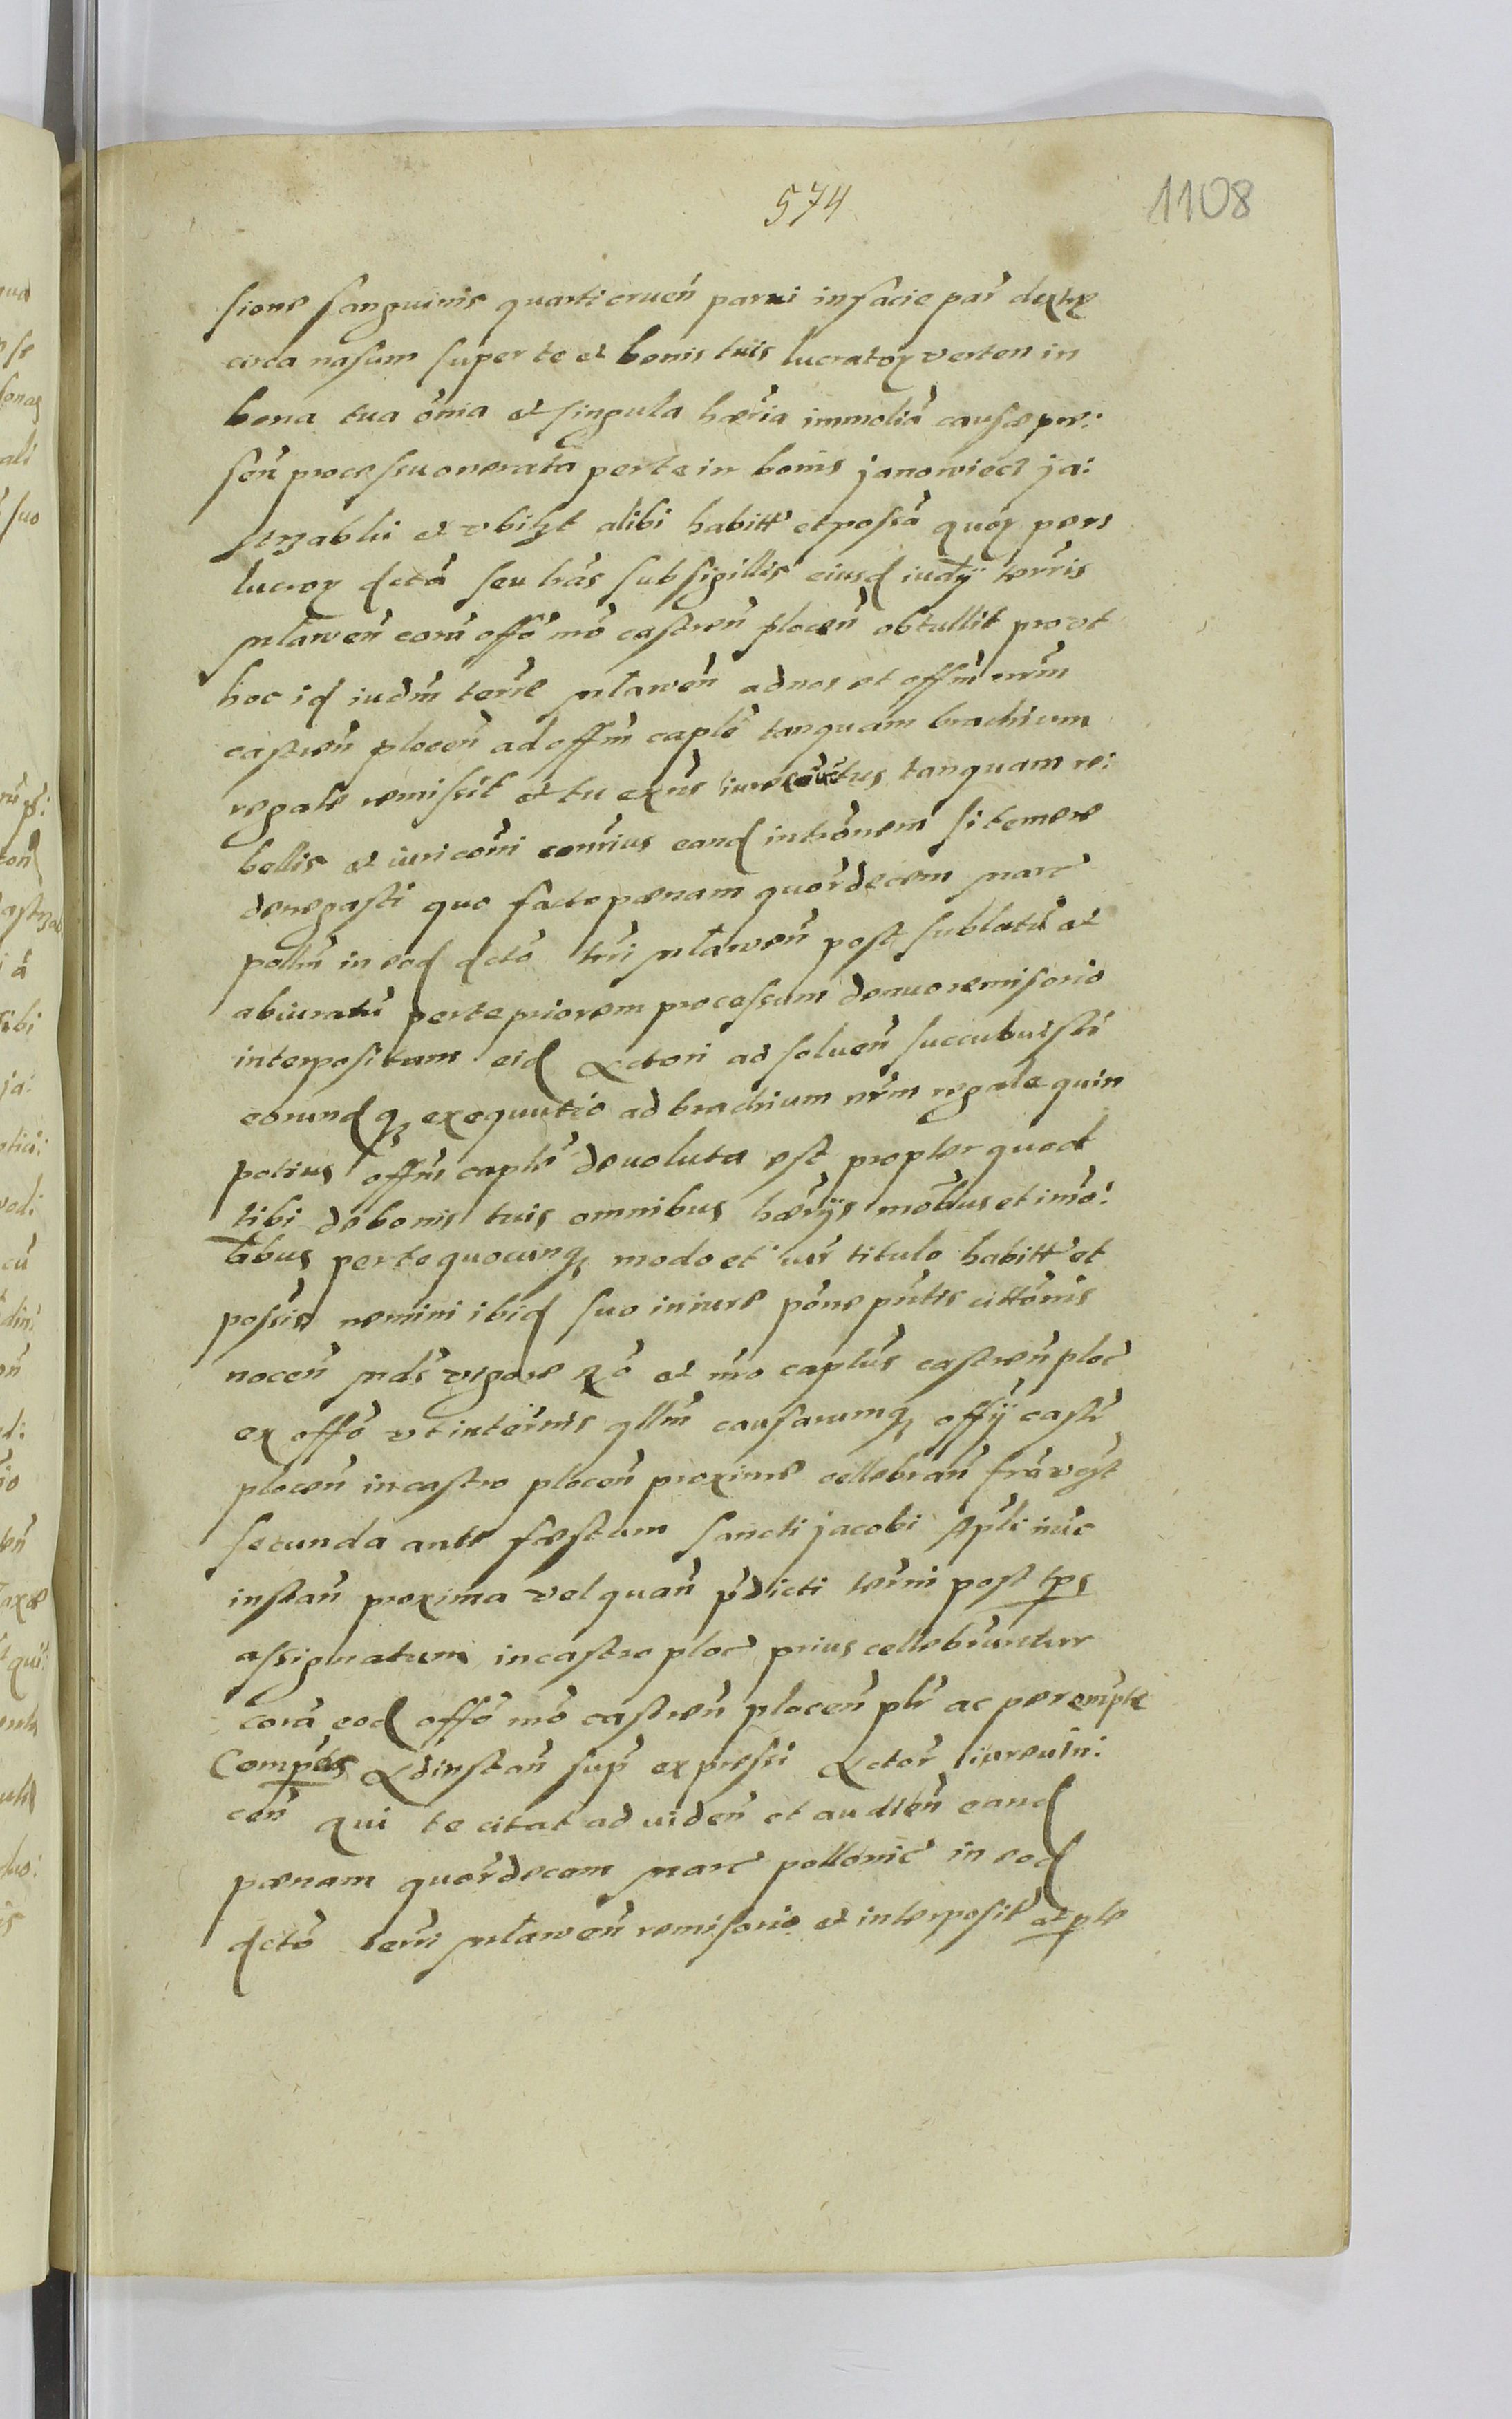 574
1108
sione sanguinis quarti cruen parui in facie par dextre
circa nasum super te et bonis tuis lucratoꝝ verten in
bona tua oīa et singula hæria immolia causæ præ:
sen processu onerata per te in bonis janowiecz ja:
strzabki et vbiꝫt alibi habitt et possa quoꝝ pers
lucroꝝ dctā seu lras sub sigillis eiusd iudÿ terris
Mlawen corā offo nro castren plocen obtullit prout
hoc id iudm terre Mlawen ad nos et offm nrm
castren plocen ad offm caple tanquam brachium
regale remissit et tu exns iure victus tanquam re:
bellis et iuri coni conrius eand intronem fi temere
denegasti quo facto pœnam quordecem marc
pollm in eod dcto tri Mlawen post sublatū et
abiuratū per te priorem processum denuo remisorio
interpositam eid Actori ad soluen succubuisti
eorundqꝫ exequutio ad brachium nrm regale quin
potius offm caple deuoluta est propter quod
tibi de bonis tuis omnibus hærÿs mobus et imo:
libus per te quocunqꝫ modo et iur titulo habitt et
possis nemini ibid suo in iure pone pntis cittonis
nocen mds vigore Ro et nro caplus castren ploc
ex offo vt in ternis qllm causarumqꝫ offÿ castr
plocen in castro plocen proxime cellebran fra vꝫt
secunda ante fæstum sancti jacobi Apli nuc
instan proxima vel quan pdicti terni post tps
assignatum in castro ploc prius cellebruntur
corā eod offo nro castren plocen plr ac perempte
Compas Ad instan sup expressi Actor iureuin:
cen qui te citat ad uiden et audien eand
pœnam quordecem marc pollonic in eod
dcto terri Mlawen remisorio et interposit et p te